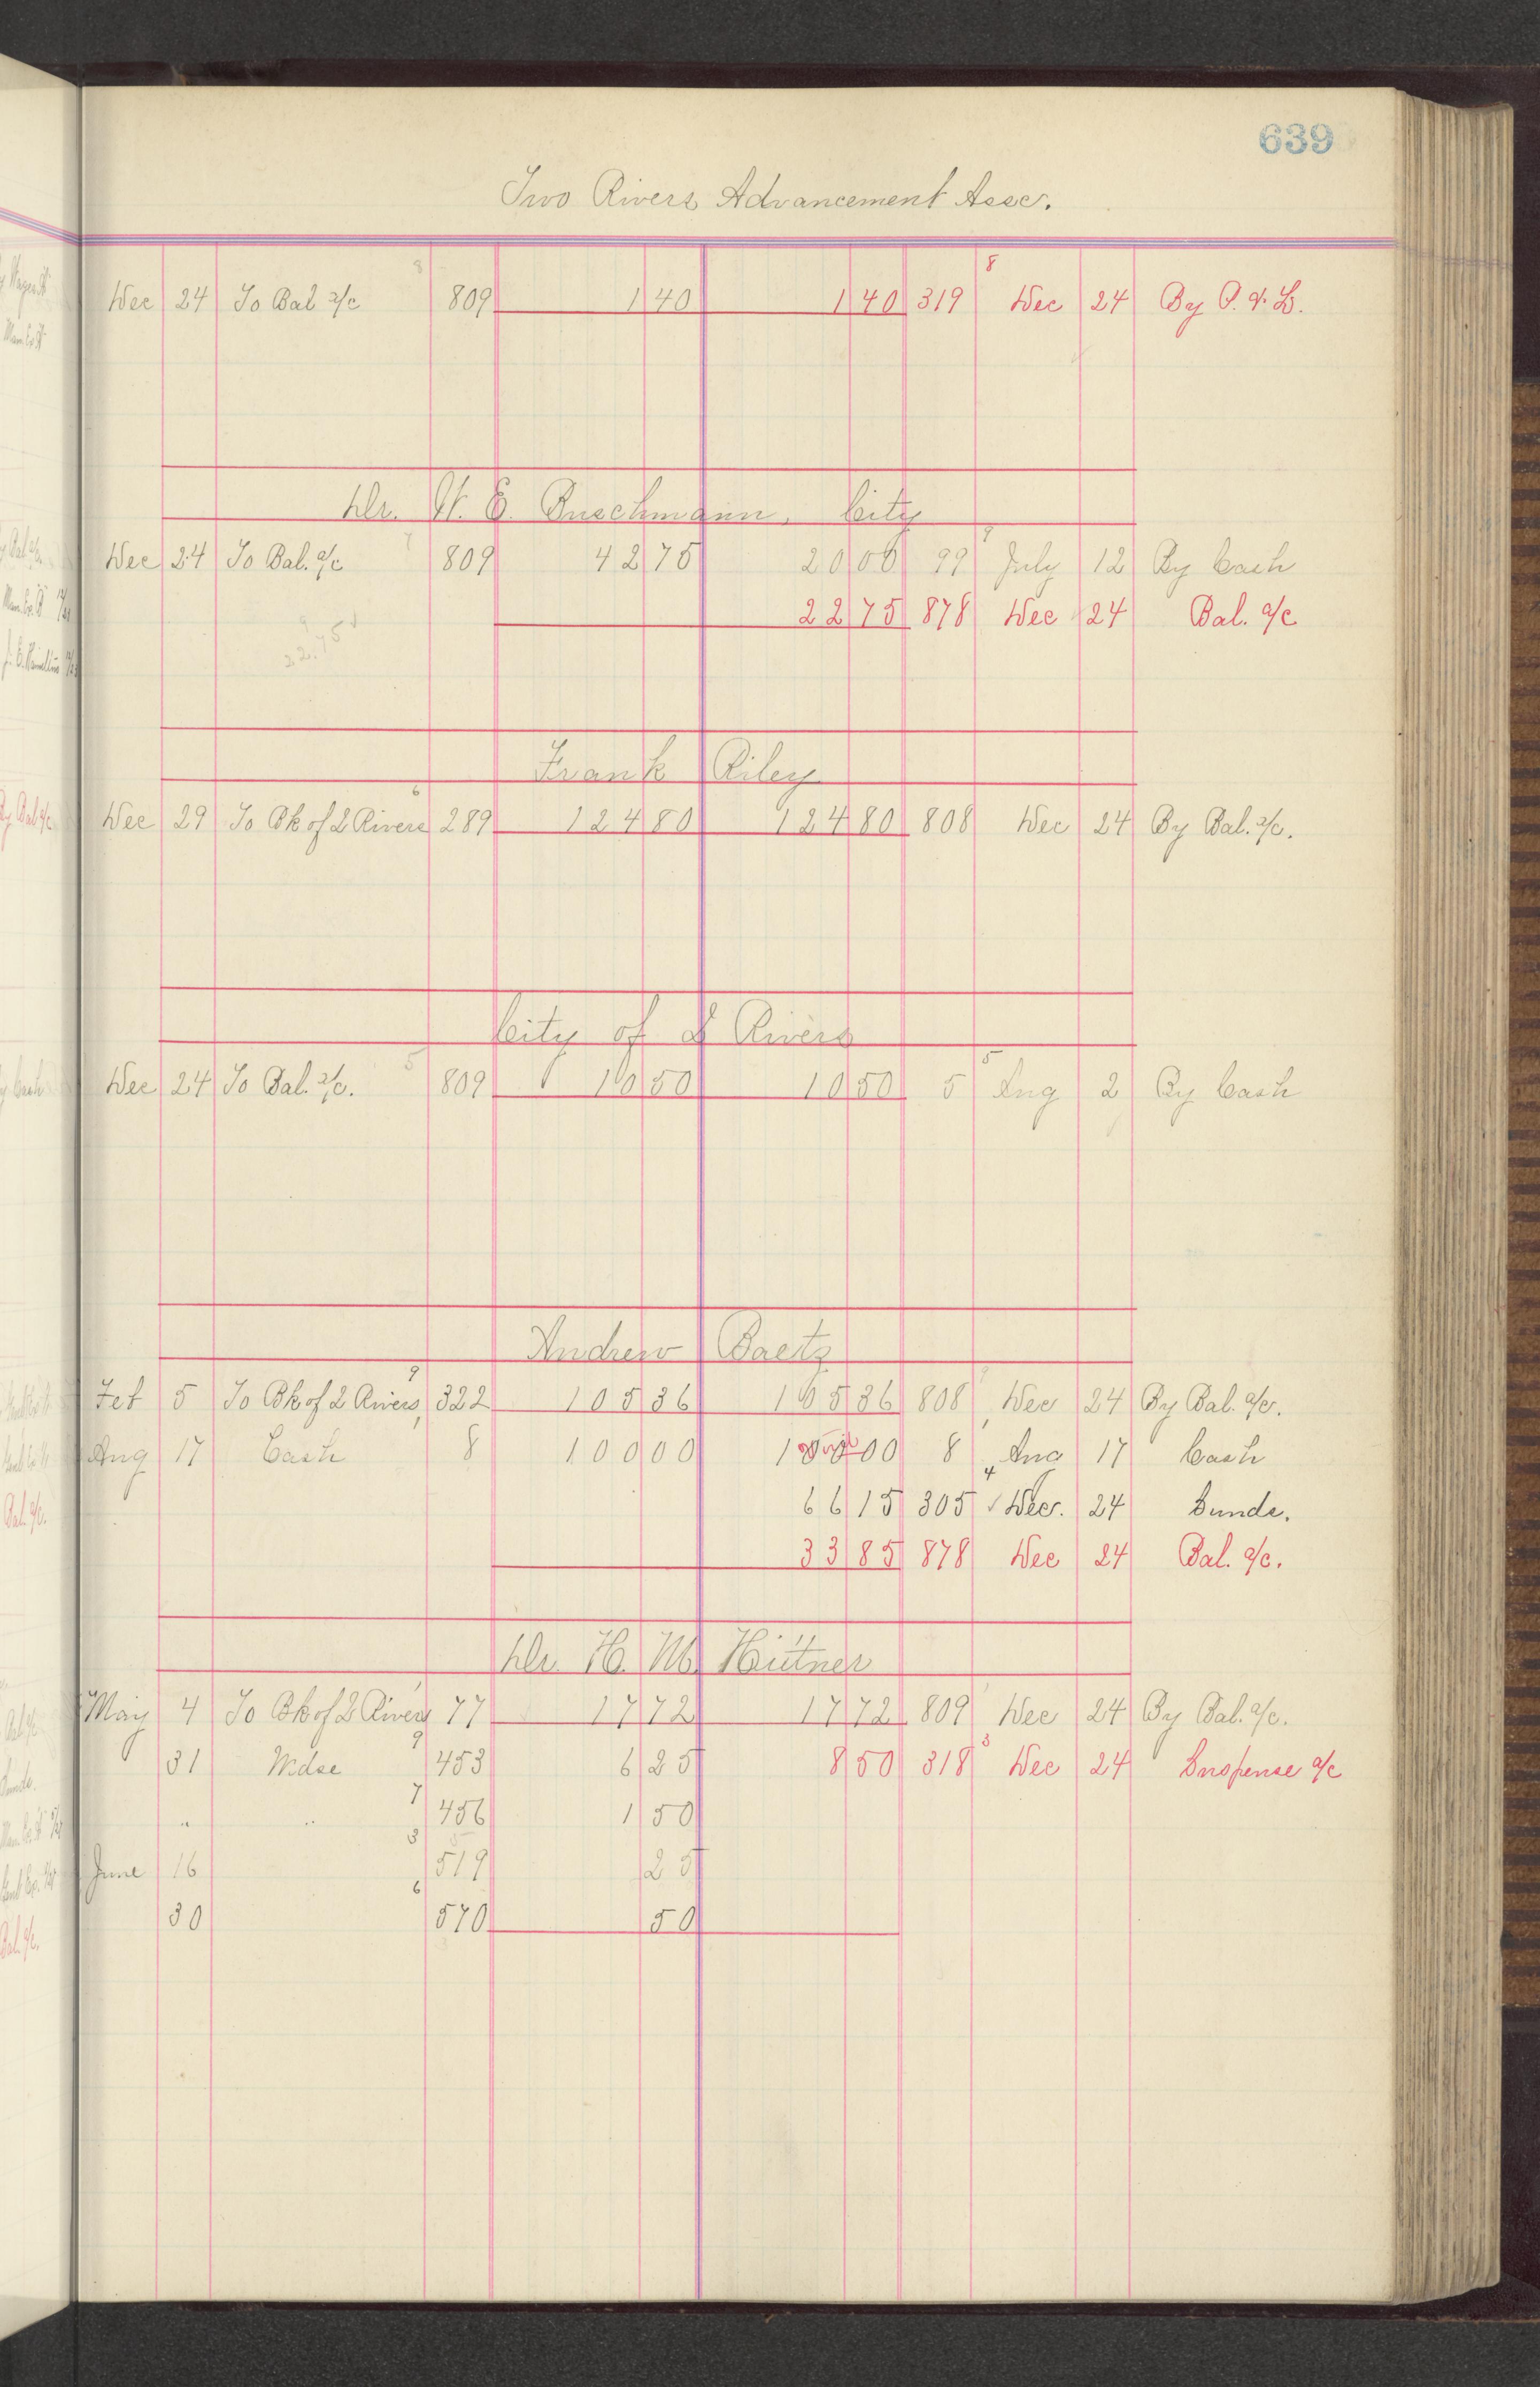 639
Two Rivers Advancement Assc.
Dec 24 To Bal a/c 8 809 1 40 1 40 319 8 Dec 24 By P. & L.
Dr. W. E. Buschmann, City
Dec 24 To Bal. a/c 7 809 42 75 20 00 99 9 July 12 By Cash
22 75 878 Dec 24 Bal. a/c
22.75
Frank Riley
Dec 29 To Bk of 2 Rivers 6 289 124 80 124 80 808 Dec 24 By Bal. a/c.
City of 2 Rivers
Dec 24 To Bal. a/c. 5 809 10 50 10 50 5 5 Aug 2 By Cash
Andrew Baetz
Feb 5 To Bk of 2 Rivers 9 322 105 36 105 36 808 Dec 24 By Bal. a/c.
Aug 17 Cash 8 100 00 100 00 8 Aug 17 Cash
66 15 305 4 ✓ Dec. 24 Sunds.
33 85 878 Dec 24 Bal. a/c.
Dr. H. M. Hütner
May 4 To Bk of 2 Rivers 77 17 72 17 72 809 Dec 24 By Bal. a/c.
31 Mdse 9 453 6 25 8 50 318 3 Dec 24 Suspense a/c
" " 7 456 1 50
June 16 3 519 25
30 6 570 50